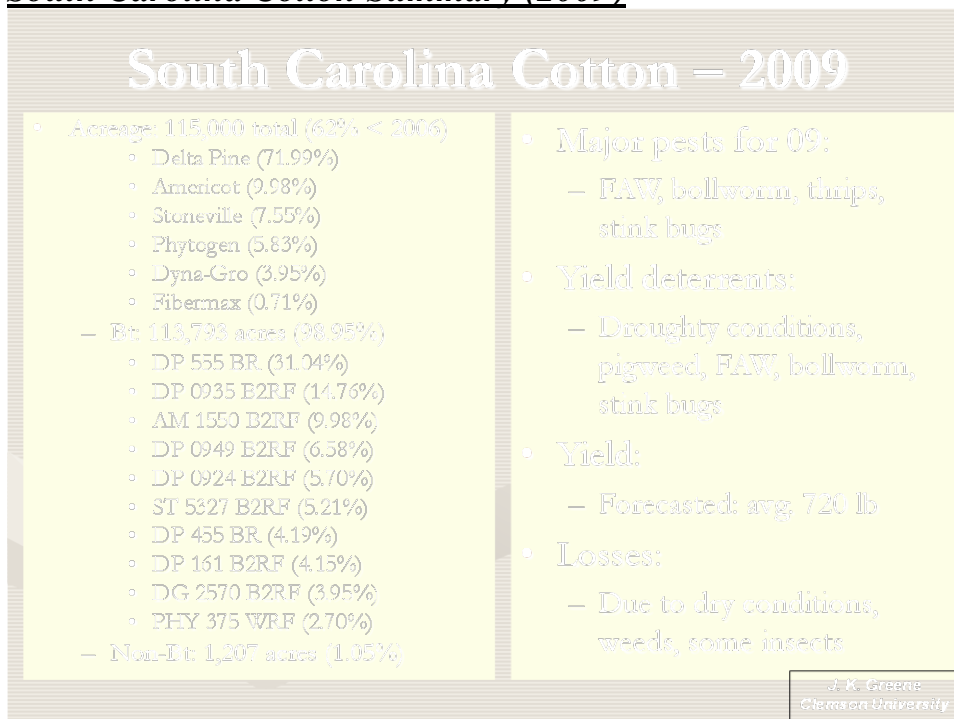 South Carolina Cotton Summary (2009)
South Carolina Cotton – 2009
• Acreage: 115,000 total (62% < 2006)
• Delta Pine (71.99%)
• Americot (9.98%)
• Stoneville (7.55%)
• Phytogen (5.83%)
• Dyna-Gro (3.95%)
• Fibermax (0.71%)
– Bt: 113,793 acres (98.95%)
• DP 555 BR (31.04%)
• DP 0935 B2RF (14.76%)
• AM 1550 B2RF (9.98%)
• DP 0949 B2RF (6.58%)
• DP 0924 B2RF (5.70%)
• ST 5327 B2RF (5.21%)
• DP 455 BR (4.19%)
• DP 161 B2RF (4.15%)
• DG 2570 B2RF (3.95%)
• PHY 375 WRF (2.70%)
– Non-Bt: 1,207 acres (1.05%)
• Major pests for 09:
– FAW, bollworm, thrips,
stink bugs
• Yield deterrents:
– Droughty conditions,
pigweed, FAW, bollworm,
stink bugs
• Yield:
– Forecasted: avg. 720 lb
• Losses:
– Due to dry conditions,
weeds, some insects
J. K. Greene
Clemson University